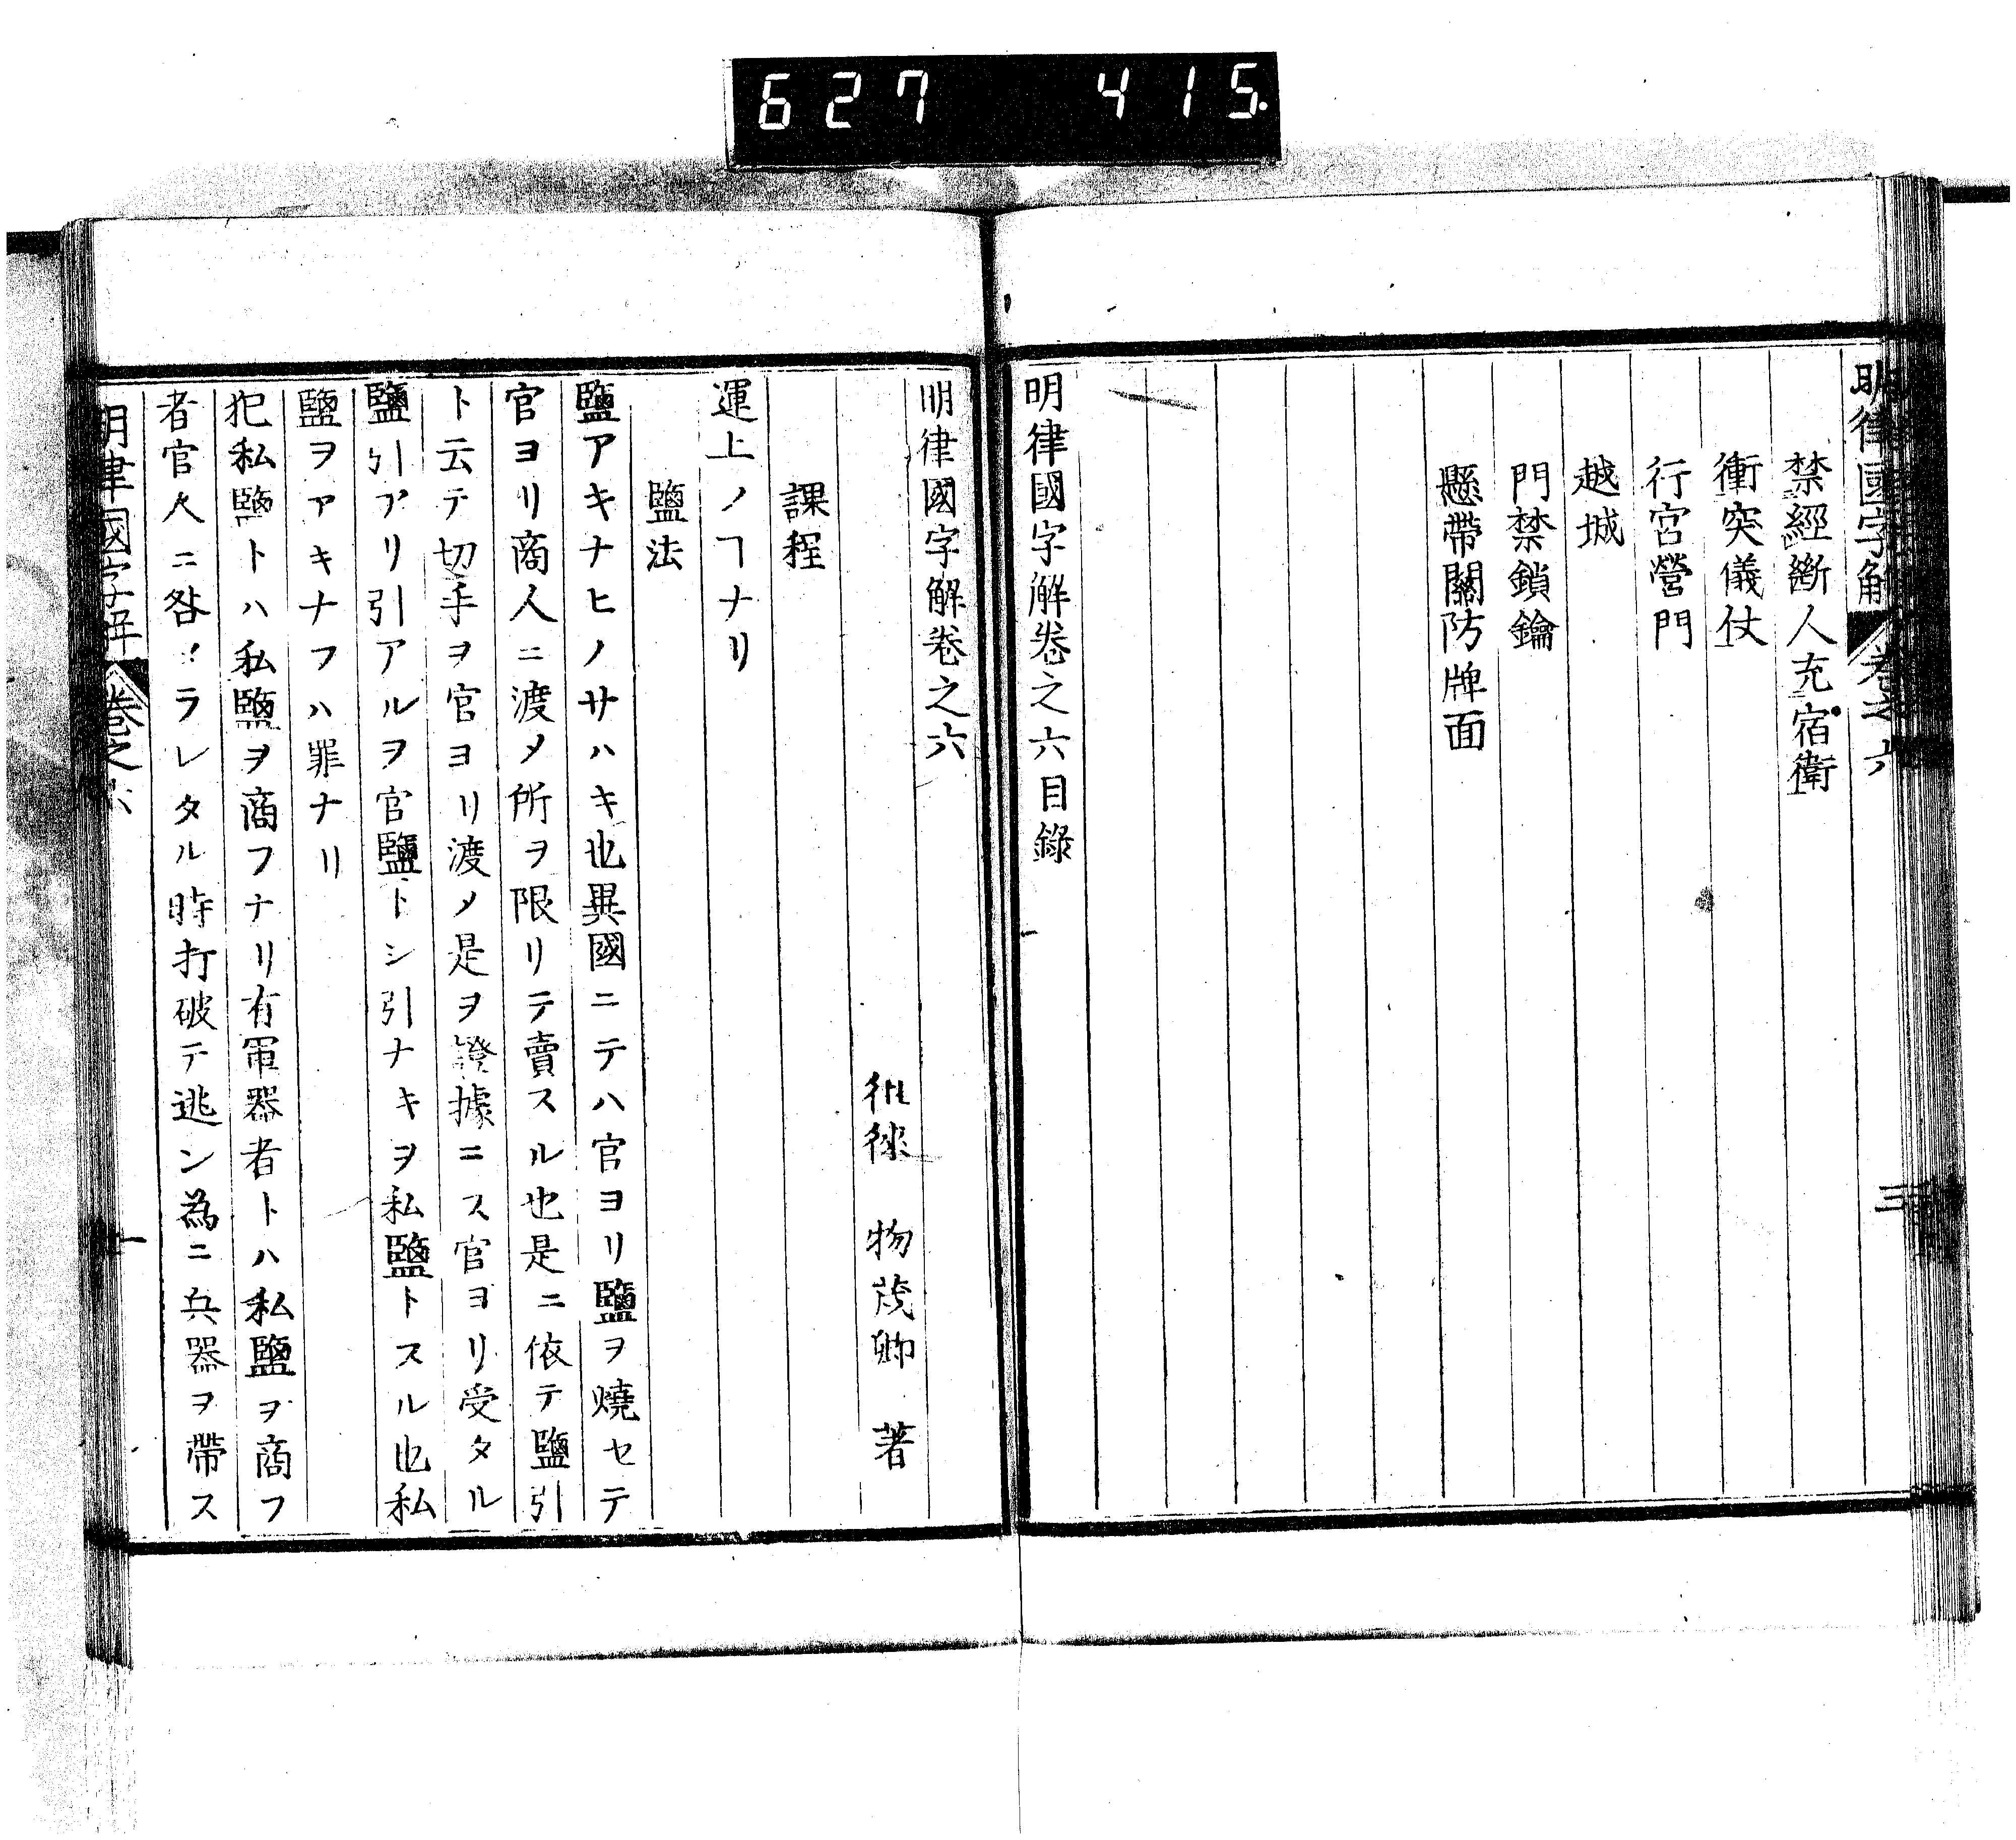 627 415.
明律國字解 卷之六 三
禁經斷人充宿衛
衝突儀仗
行宮營門
越城
門禁鎖鑰
懸帶關防牌面
明律國字解卷之六目錄
明律國字解卷之六
徂徠 物茂卿 著
課程
運上ノヿナリ
鹽法
鹽アキナヒノサハキ也異國ニテハ官ヨリ鹽ヲ燒セテ
官ヨリ商人ニ渡メ所ヲ限リテ賣スル也是ニ依テ鹽引
ト云テ切手ヲ官ヨリ渡メ是ヲ證據ニス官ヨリ受タル
鹽引アリ引アルヲ官鹽トシ引ナキヲ私鹽トスル也私
鹽ヲアキナフハ罪ナリ
犯私鹽トハ私鹽ヲ商フナリ有軍器者トハ私鹽ヲ商フ
者官人ニ咎メラレタル時打破テ逃ン為ニ兵器ヲ帶ス
明律國字解 卷之六 一